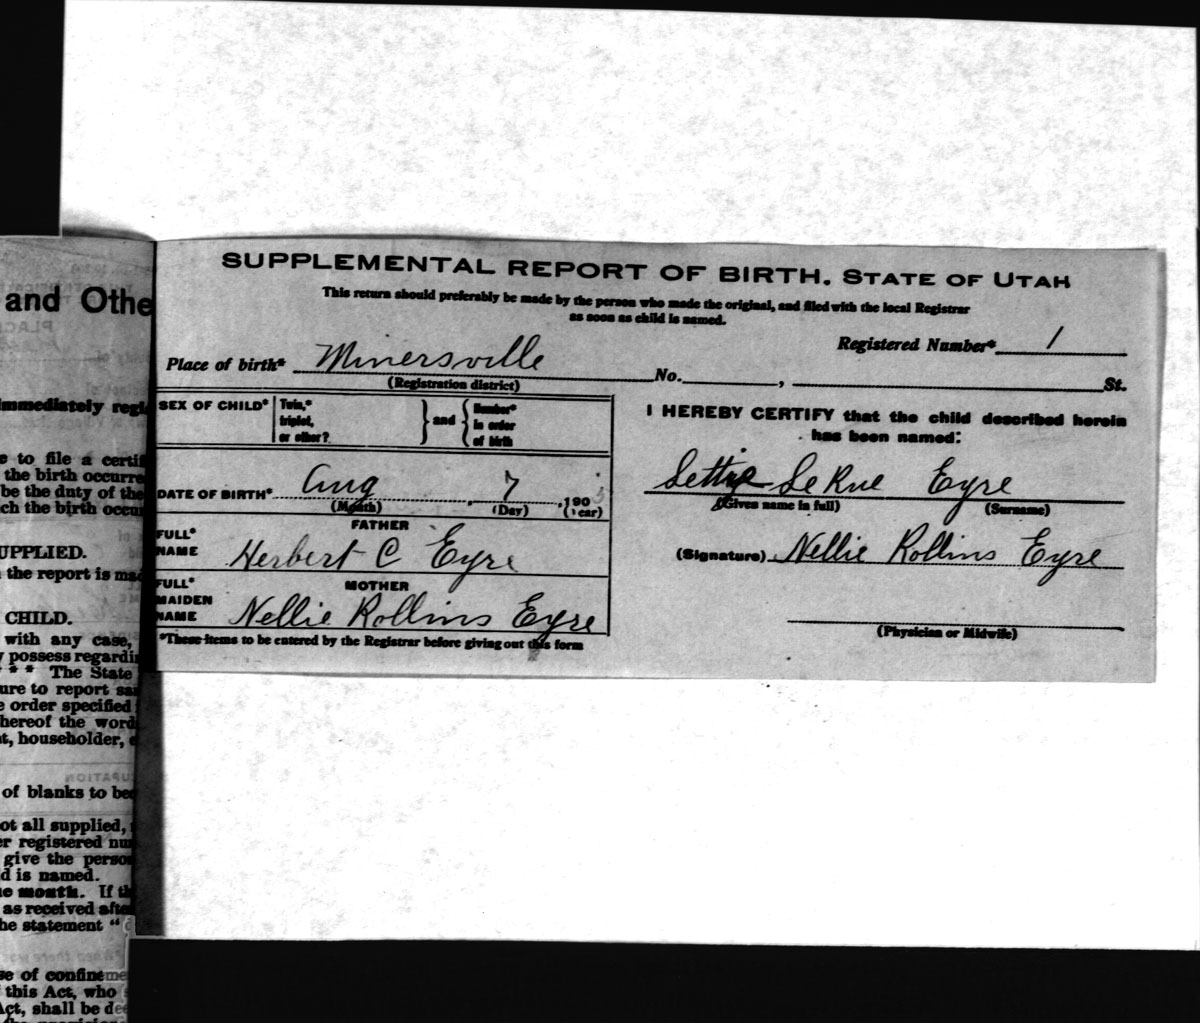 SUPPLEMENTAL REPORT OF BIRTH. STATE OF UTAH
This return should preferably be made by the person who made the original, and filed with the local Registrar
as soon as child is named.
Registered Number* 1
Place of birth* Minersville No. , St.
(Registration district)
SEX OF CHILD* Twin,* triplet, or other? } and { Number* in order of birth
I HEREBY CERTIFY that the child described herein
has been named:
DATE OF BIRTH* Aug 7, 190
(Month) (Day) (Year)
Lettie LeRue Eyre
(Given name in full) (Surname)
FATHER
FULL* NAME Herbert C Eyre
(Signature) Nellie Rollins Eyre
MOTHER
FULL* MAIDEN NAME Nellie Rollins Eyre
(Physician or Midwife)
*These items to be entered by the Registrar before giving out this form
and Othe
immediately regi
e to file a certi
the birth occurre
be the duty of the
ch the birth occu
UPPLIED.
the report is ma
CHILD.
with any case,
y possess regardi
* * The State
ure to report sa
e order specified
hereof the word
t, householder,
of blanks to be
ot all supplied,
er registered nu
give the perso
d is named.
e month. If t
as received afte
he statement "
se of confineme
this Act, who
Act, shall be dee